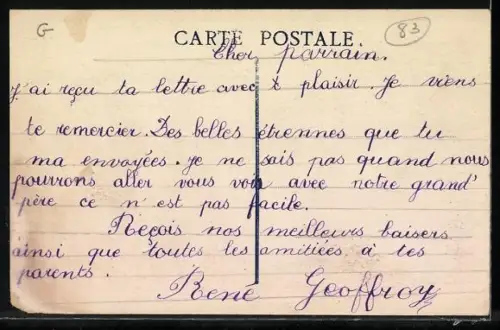 G
83
CARTE POSTALE.
Cher parrain.
J'ai reçu ta lettre avec plaisir. Je viens
te remercier. Des belles étrennes que tu
ma envoyées. Je ne sais pas quand nous
pourrons aller vous voir avec notre grand'
père ce n'est pas facile.
Reçois nos meilleurs baisers
ainsi que toutes les amitiées à tes
parents.
René Geoffroy